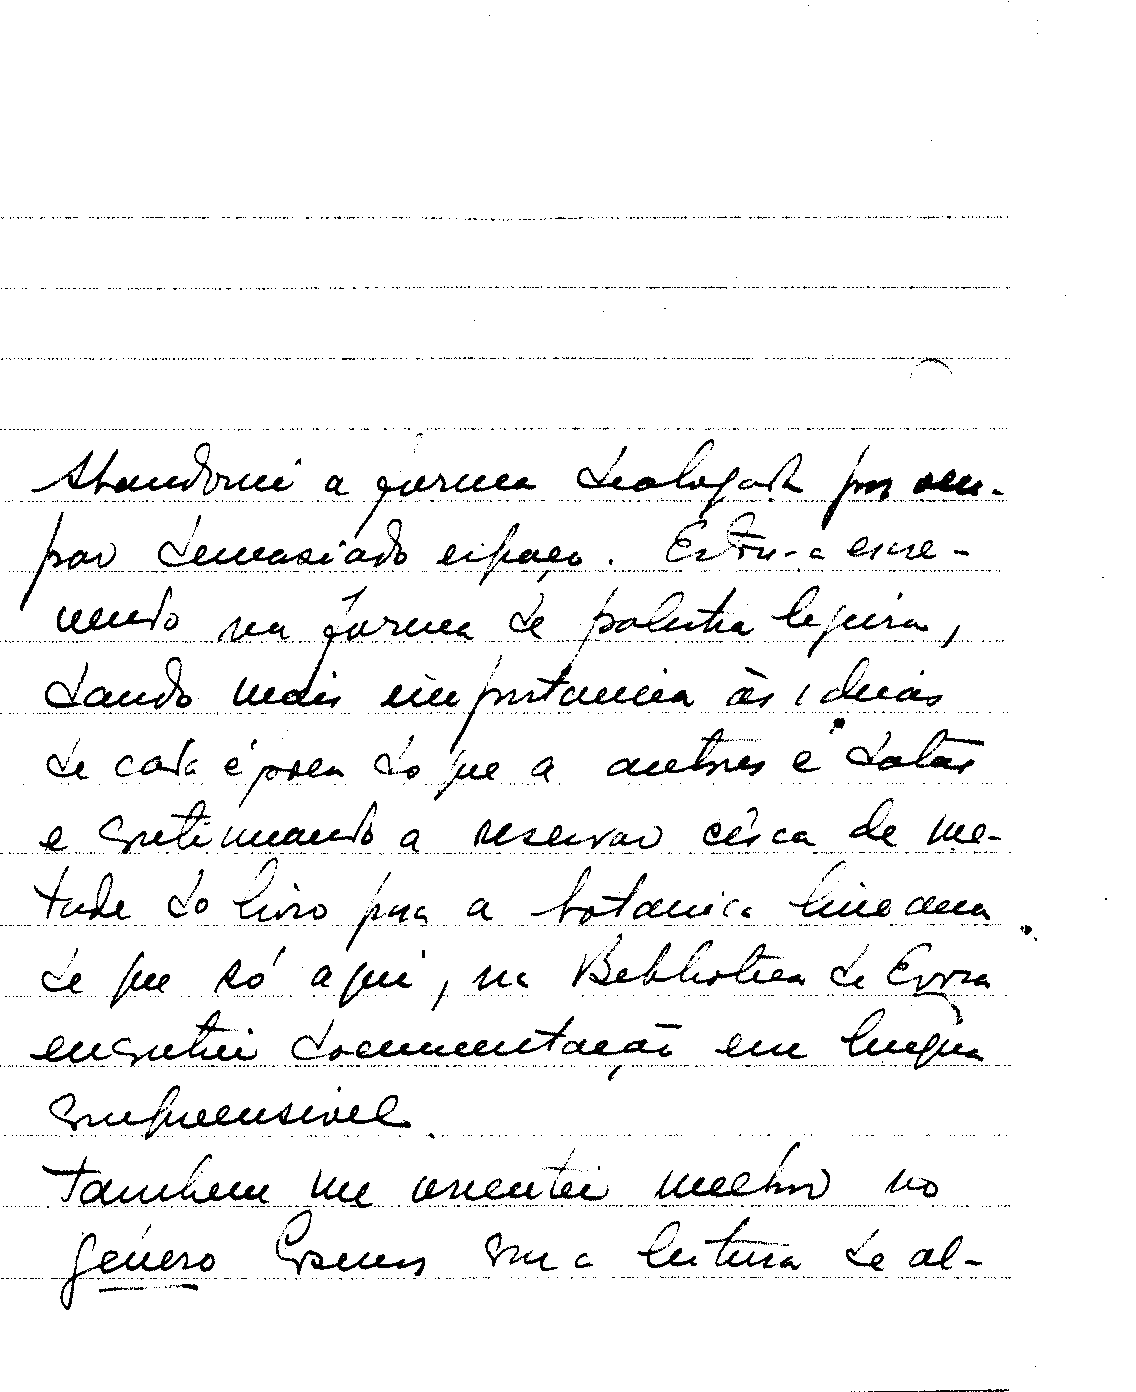 Abandonei a forma dialogada por ocu-
par demasiado espaço. Estou-a escre-
vendo na forma de palestra ligeira,
dando mais importancia às ideias
de cada época do que a autores e datas
e continuando a reservar cêrca de me-
tade do livro para a botanica lineana
de que só aqui, na Biblioteca de Evora
encontrei documentação em lingua
compreensivel.
Tambem me orientei melhor no
género Cosmos com a leitura de al-